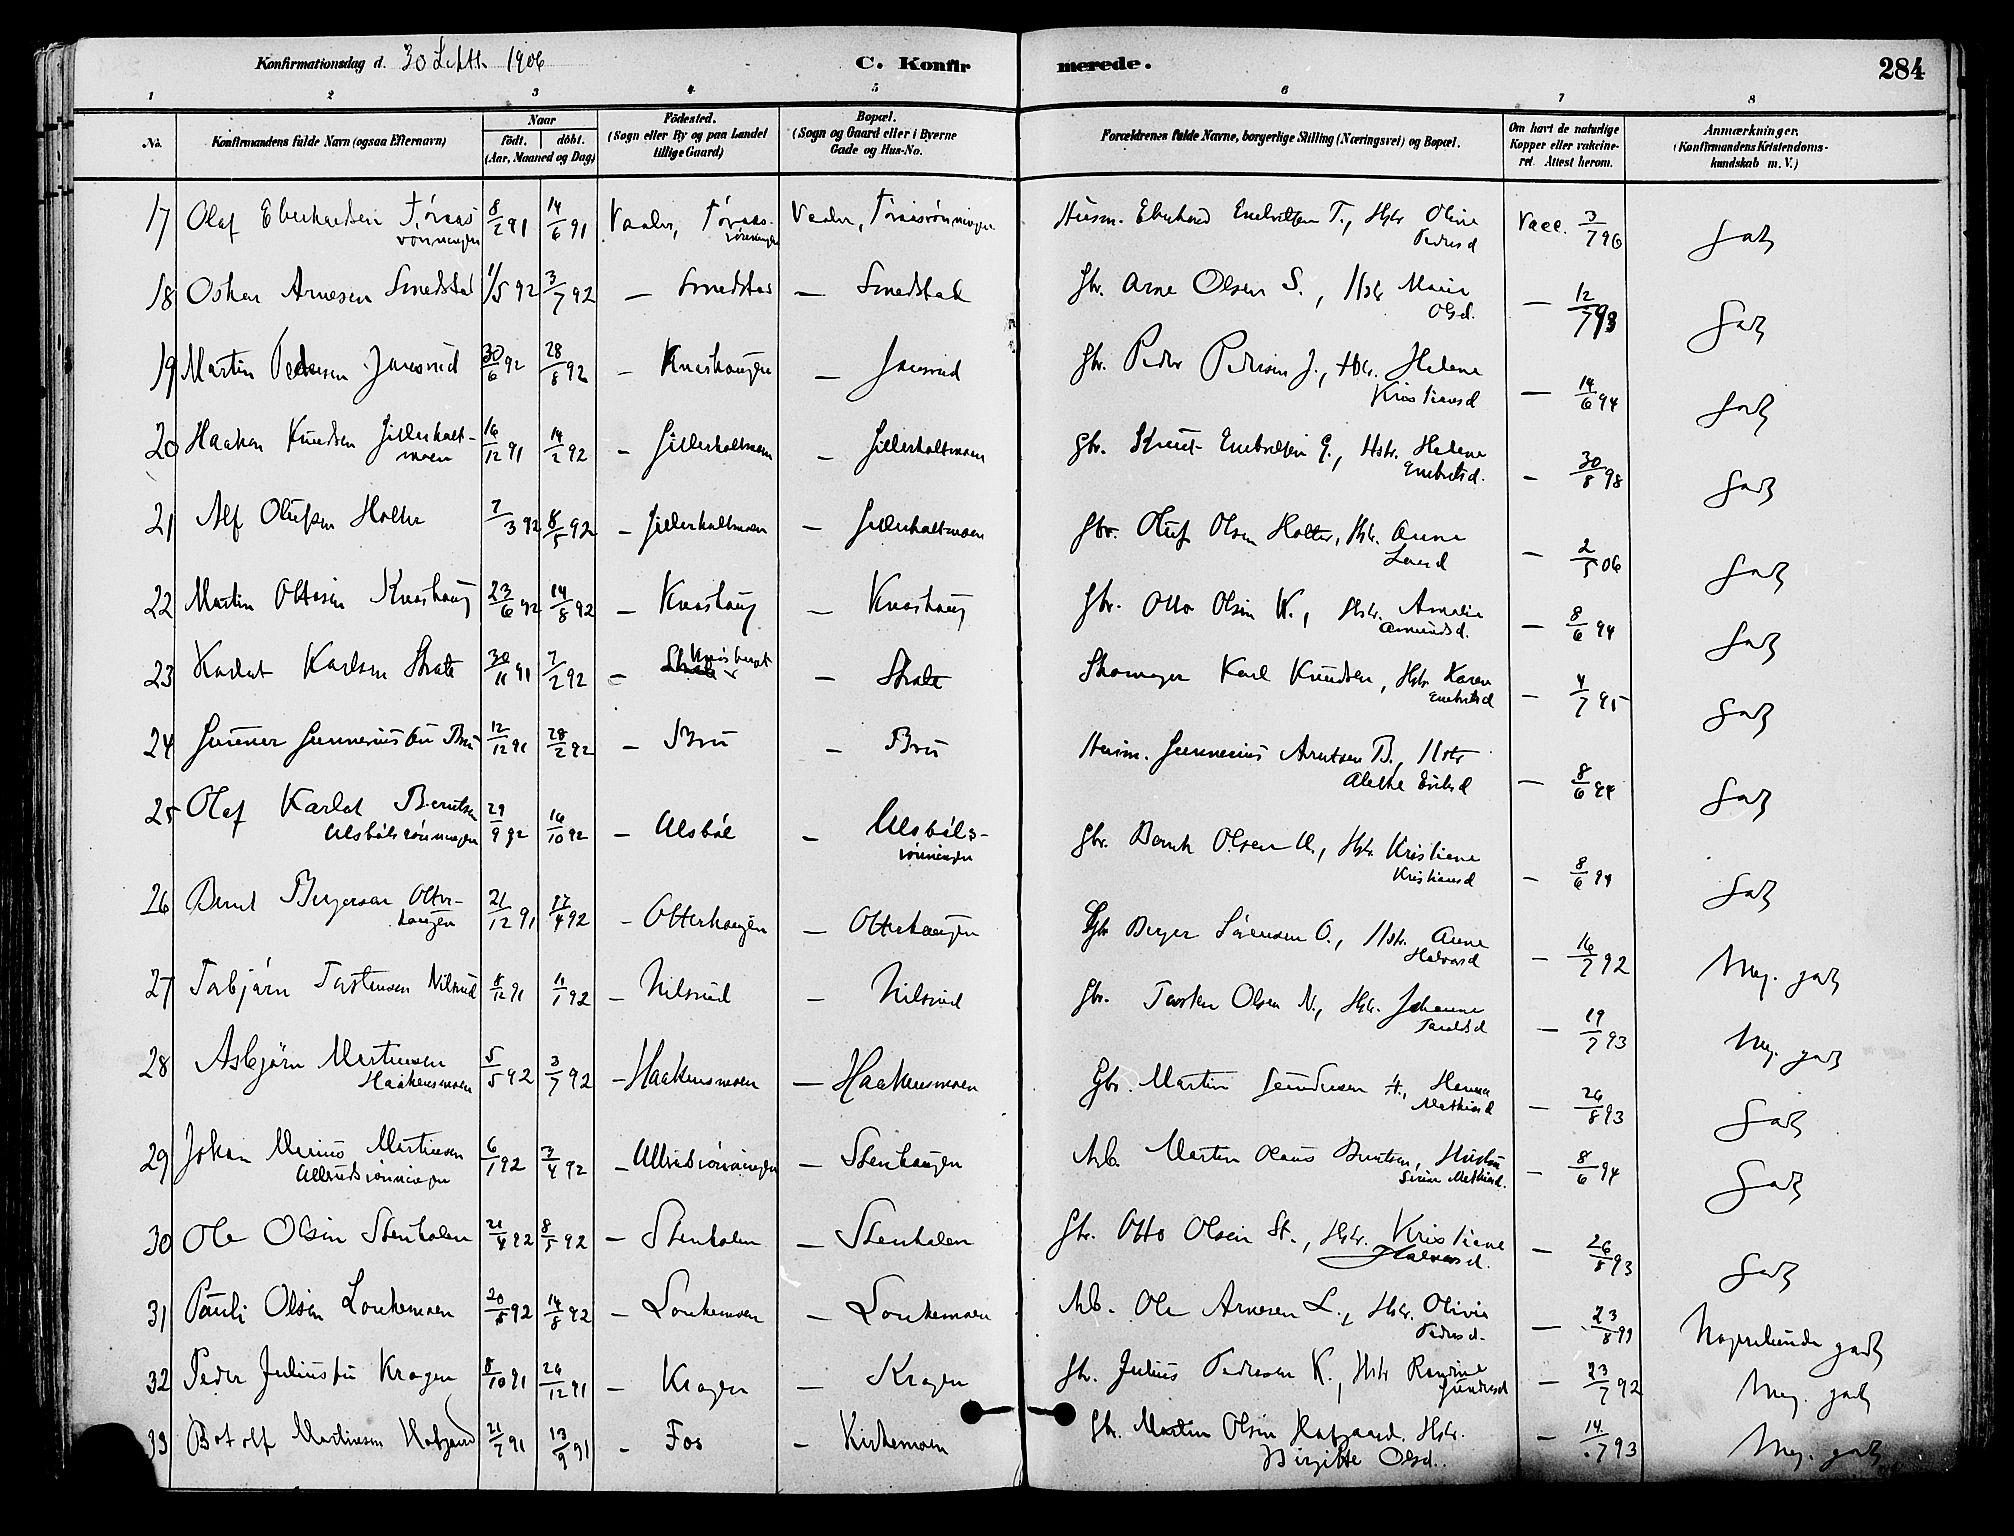 Konfirmationsdag d. 30 Septb. 1906
C. Konfirmerede.
284
1 2 3 4 5 6 7 8
No.
Konfirmandens fulde Navn (ogsaa Efternavn)
Naar
födt. döbt.
(Aar, Maaned og Dag)
Födested.
(Sogn eller By og paa Landet
tillige Gaard)
Bopæl.
(Sogn og Gaard eller i Byerne
Gade og Hus-No.
Forældrenes fulde Navne, borgerlige Stilling (Næringsvei) og Bopæl.
Om havt de naturlige
Kopper eller vakcine-
ret. Attest herom.
Anmærkninger.
(Konfirmandens Kristendoms-
kundskab m. V.)
17 Olaf Eberhardsen Tóraas- 8/2 91 14/6 91 Vaaler, Tóraas- Vaaler, Toraasrónningen Husm. Eberhard Enebretsen T., Hstr. Oline Vacc. 3/7 96 Godt
rónningen rónningen Pedersd
18 Oskar Arnesen Smedstad 1/5 92 3/7 92 — Smedstad — Smedstad Gbr. Arne Olsen S., Hstr Marie — 12/7 93 Godt
Olsd.
19 Martin Pedersen Jansrud 30/6 92 28/8 92 — Knashaugen — Jansrud Gbr. Peder Pedersen J., Hstr. Helene — 14/6 94 Godt
Kristiansd
20 Haakon Knudsen Gillerholt- 16/12 91 14/2 92 — Gillerholtmoen — Gillerholtmoen Gbr. Knut Enebretsen G., Hstr. Helene — 30/8 98 Godt
moen Enebretsd.
21 Alf Olufsen Holter 7/3 92 8/5 92 — Gillerholtmoen — Gillerholtmoen Gbr. Oluf Olsen Holter, Hstr. Anne — 2/5 06 Godt
Larsd
22 Martin Ottosen Knashaug 23/6 92 14/8 92 — Knashaug — Knashaug Gbr. Otto Olsen K., Hstr. Amalie — 8/6 94 Godt
Amundsd.
23 Karlot Karlsen Skate 30/11 91 7/2 92 — — Skate Skomager Karl Knudsen, Hstr Karen — 4/7 95 Godt
Enebretsd
24 Gunner Gunneriussen Bru 12/12 91 28/2 92 — Bru — Bru Husm. Gunnerius Arntsen B., Hstr — 8/6 94 Godt
Alethe Eriksd
25 Olaf Karlot Berntsen 29/9 92 16/10 92 — Ulsból — Ulsbóls- Gbr. Bernt Olsen U., Hstr Kristiane — 8/6 94 Godt
Ulsbólsrónningen rónningen Kristiansd
26 Bernt Bergersen Otter- 21/12 91 17/4 92 — Otterhaugen — Otterhaugen Gbr Berger Sórensen O., Hstr. Anne — 16/7 92 Meg. godt
haugen Halvorsd
27 Torbjórn Torstensen Nilsrud 8/12 91 11/1 92 — Nilsrud — Nilsrud Gbr. Torsten Olsen N., Hstr. Johanne — 19/7 93 Meg. godt
28 Asbjórn Martinsen 5/5 92 3/7 92 — Haakensmoen — Haakensmoen Gbr. Martin Gundersen H., Hanna — 26/8 93 Godt
Haakensmoen Mathiasd
29 Johan Marius Martinsen 6/1 92 3/4 92 — Allrudsrónningen — Stenhaugen Arb. Martin Olaus Berntsen, Hustru — 8/6 94 Godt
Allrudsrónningen Sirine Mathiasd.
30 Ole Olsen Stenholen 21/4 92 8/5 92 — Stenholen — Stenholen Gbr. Otto Olsen St., Hstr. Kristiane — 26/8 93 Godt
Halvorsd.
31 Pauli Olsen Lonkemoen 20/5 92 14/8 92 — Lonkemoen — Lonkemoen Arb. Ole Arnesen L., Hstr. Olivia — 23/8 99 godt
Pedersd.
32 Peder Juliussen Kragen 8/10 91 26/12 91 — Kragen — Kragen Gbr. Julius Pedersen K., Hstr Randine — 23/7 92 Meg. godt
Gundersd
33 Botolf Martinsen Hofgaard 21/7 91 13/9 91 — Fos — Kirkemoen Gbr. Martin Olsen Hofgaard, Hstr. — 14/7 93 Meg. godt
Birgitte Olsd.